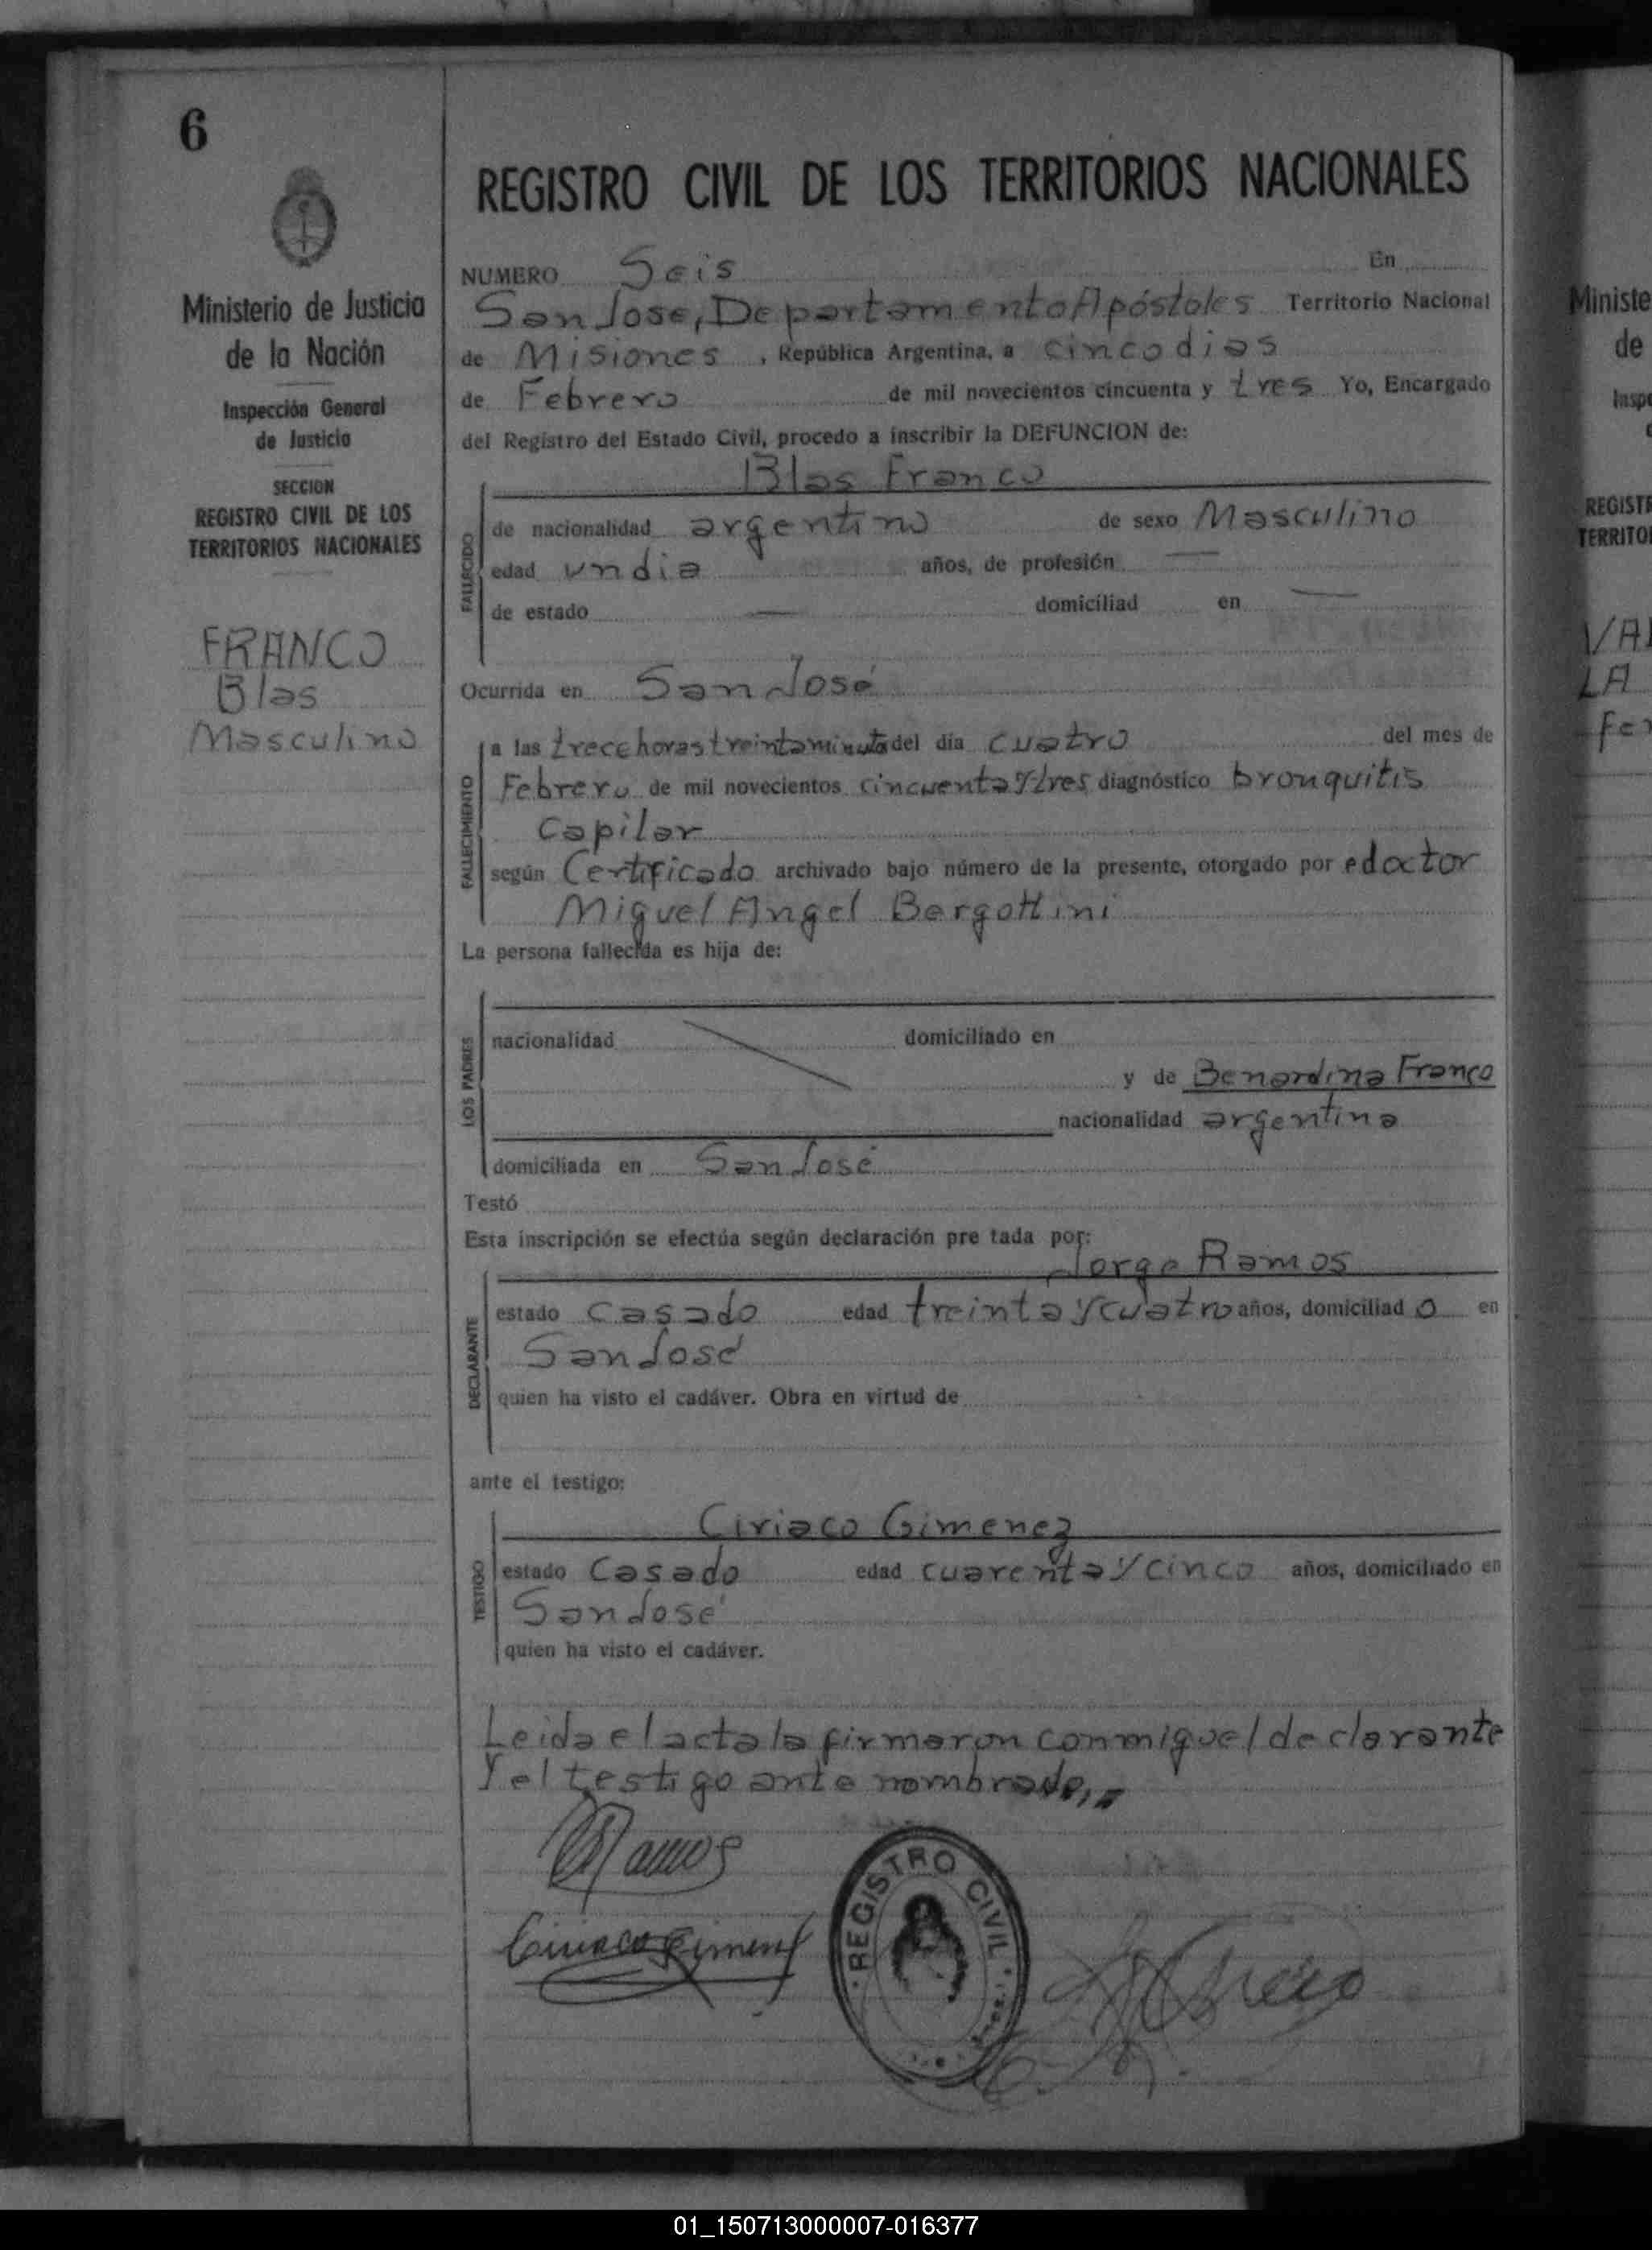 6
Ministerio de Justicia
de la Nación
Inspección General
de Justicia
SECCION
REGISTRO CIVIL DE LOS
TERRITORIOS NACIONALES
FRANCO
Blas
Masculino
REGISTRO CIVIL DE LOS TERRITORIOS NACIONALES
NUMERO Seis En
San Jose, Departamento Apóstoles Territorio Nacional
de Misiones, República Argentina, a cinco dias
de Febrero de mil novecientos cincuenta y tres Yo, Encargado
del Registro del Estado Civil, procedo a inscribir la DEFUNCION de:
Blas Franco
FALLECIDO
de nacionalidad argentino de sexo Masculino
edad un dia años, de profesión —
de estado — domiciliad en —
Ocurrida en San José
FALLECIMIENTO
a las trece horas treinta minutos del día cuatro del mes de
Febrero de mil novecientos cincuenta y tres diagnóstico bronquitis
capilar
según Certificado archivado bajo número de la presente, otorgado por edoctor
Miguel Angel Bergottini
La persona fallecida es hija de:
LOS PADRES
nacionalidad domiciliado en
y de Benardina Franco
nacionalidad argentina
domiciliada en San José
Testó
Esta inscripción se efectúa según declaración pre tada por:
Jorge Ramos
DECLARANTE
estado casado edad treinta y cuatro años, domiciliad o en
San José
quien ha visto el cadáver. Obra en virtud de
ante el testigo:
Ciriaco Gimenez
TESTIGO
estado Casado edad cuarenta y cinco años, domiciliado en
San José
quien ha visto el cadáver.
Leida el acta la firmaron conmigo el declarante
y el testigo ante nombrado,,
Ramos
Ciriaco Gimenez
REGISTRO CIVIL
Ministe
de
Inspe
REGISTR
TERRITO
VAL
LA
Fer
01_150713000007-016377